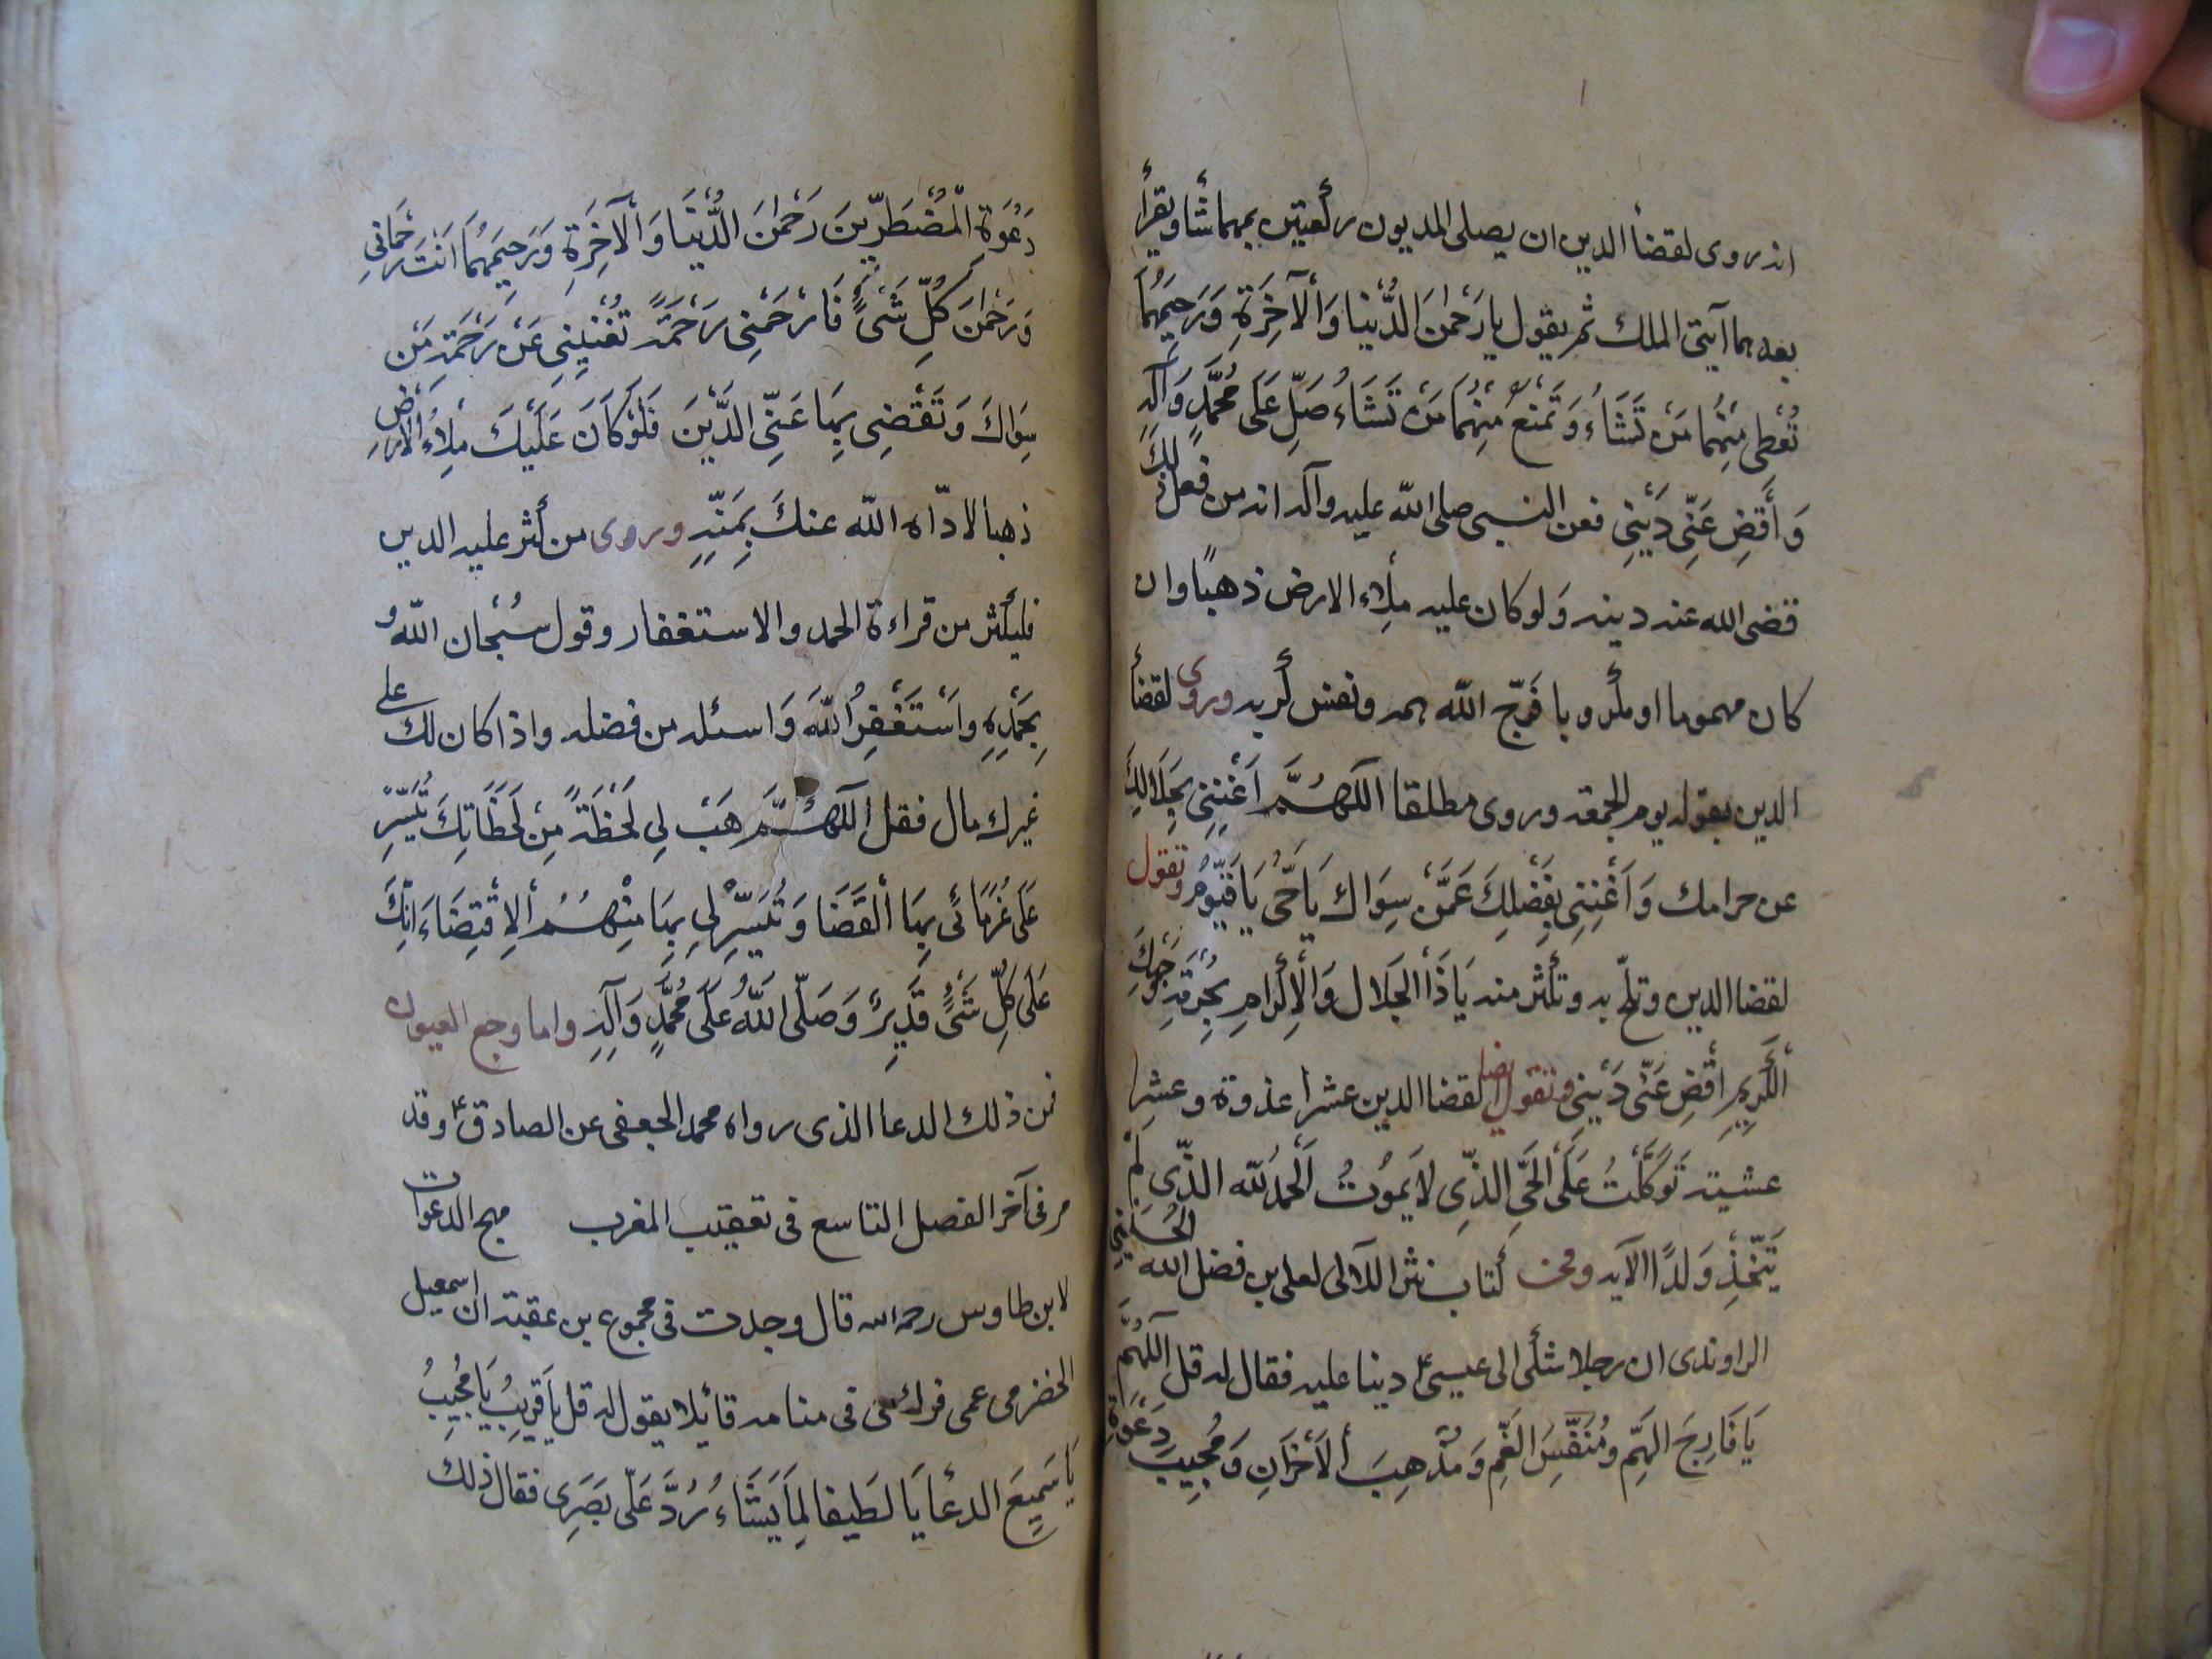 انه روى لقضأ الدين ان يصلى المديون ركعتين بمهما شأ ويقرأ
بعدهما آيتى الملك ثم يقول يا رَحْمٰنَ الدُّنيا وَالْآخِرَةِ وَرَحِيمَهُمَا
تُعْطِى مِنْهُما مَنْ تَشَاءُ وَتَمْنَعُ مِنْهُمَا مَنْ تَشَاءُ صَلِّ عَلَى مُحَمَّدٍ وَآلِهِ
وَأَقْضِ عَنِّى دَيْنِى فعن النبى صلى الله عليه وآله انه من فعل ذلك
قضى الله عنه دينه وَلو كان عليه مِلاء الارض ذهبًا وان
كان مهموما او مكروبا فَرّج الله همه ونفس كربه وروى لقضأ
الدين بقوله يوم الجمعة وروى مطلقا اللّهُمَّ اَغْنِنِى بِحَلَالِكَ
عن حرامك وَاَغْنِنِى بِفَضْلِكَ عَمَّنْ سِوَاك يَا حَىُّ يَا قَيُّومُ وتقول
لقضا الدين وتلحّ به وتكثر منه يَا ذَا الجَلَال وَالْاِكْرامِ بِحُرمَةِ وَجْهِكَ
الْكَرِيمِ اقْضِ عَنّى دَيْنِى وتقول ايضا لقضا الدين عشرا غدوة وعشرا
عشيته تَوَكَّلْتُ عَلَى الْحَىِّ الَّذِى لا يَمُوتُ اَلْحَمْدُ لِلّه الذّى لَمْ
يَتَّخِذْ وَلَدًا الآيه وفى كتاب نثر اللآلى لعلى بن فضل الله الحُسَيْنِى
الراوندى ان رجلا شكى الى عيسىٰ ع دينا عليه فقال له قل اللّهُمَّ
يَا فَارِجَ الهَمِّ ومُنَفِّسَ الغَمِّ وَمُذْهِبَ الْاَحْزَانِ وَمُجِيبَ دَعْوَةِ
دَعْوَةِ الْمُضْطَرِّينَ رَحْمٰنَ الدُّنْيَا وَالْآخِرَةِ وَرَحِيمَهُمَا اَنْتَ رَحْمَانِى
وَرَحْمٰنَ كُلِّ شَىْءٍ فَارْحَمْنِى رَحْمَةً تُغْنِينِى عَنْ رَحْمَةِ مَنْ
سِوَاكَ وَتَقْضِى بِهَا عَنِّى الدَّيْنَ فَلَوْ كَانَ عَلَيْكَ مِلاُْ الْاَرْضِ
ذهبا لادّاه الله عنكَ بِمَنِّهِ وروى من كثر عليه الدين
فليكثر من قراءة الحمد والاستغفار وقول سُبْحان اللّهِ وَ
بِحَمْدِهِ وَاَسْتَغْفِرُ اللّهَ وَاسئله من فضله واذا كان لك على
غيرك مال فقل اللّهُمَّ هَبْ لِى لَحْظَةً مِنْ لَحَظَاتِكَ تُيَسِّرُ
عَلَى غُرَمَائى بِهَا الْقَضَا وَتُيَسِّرْ لِى بِهَا مِنْهُمُ الِاقْتِضَاءَ اِنَّكَ
عَلَى كُلِّ شَىْءٍ قَدِيرٌ وَصَلَّى اللهُ عَلَى مُحَمَّدٍ وَآلِهِ واما وجع العيون
فمن ذلك الدعا الذى رواه محمد الجعفى عن الصادق ع وقد
مر فى آخر الفصل التاسع فى تعقيب المغرب مهج الدعوات
لابن طاوس رحمه الله قال وجدت فى مجموع بن عقبة ان اسمعيل
الحضرمى عمى فرأى فى منامه قائلا يقول له قل يَا قَرِيبُ يَا مُجِيبُ
يَا سَمِيعَ الدعَا يَا لَطِيفا لِمَا يَشَاءُ رُدَّ عَلَىّ بَصَرِى فقال ذلك